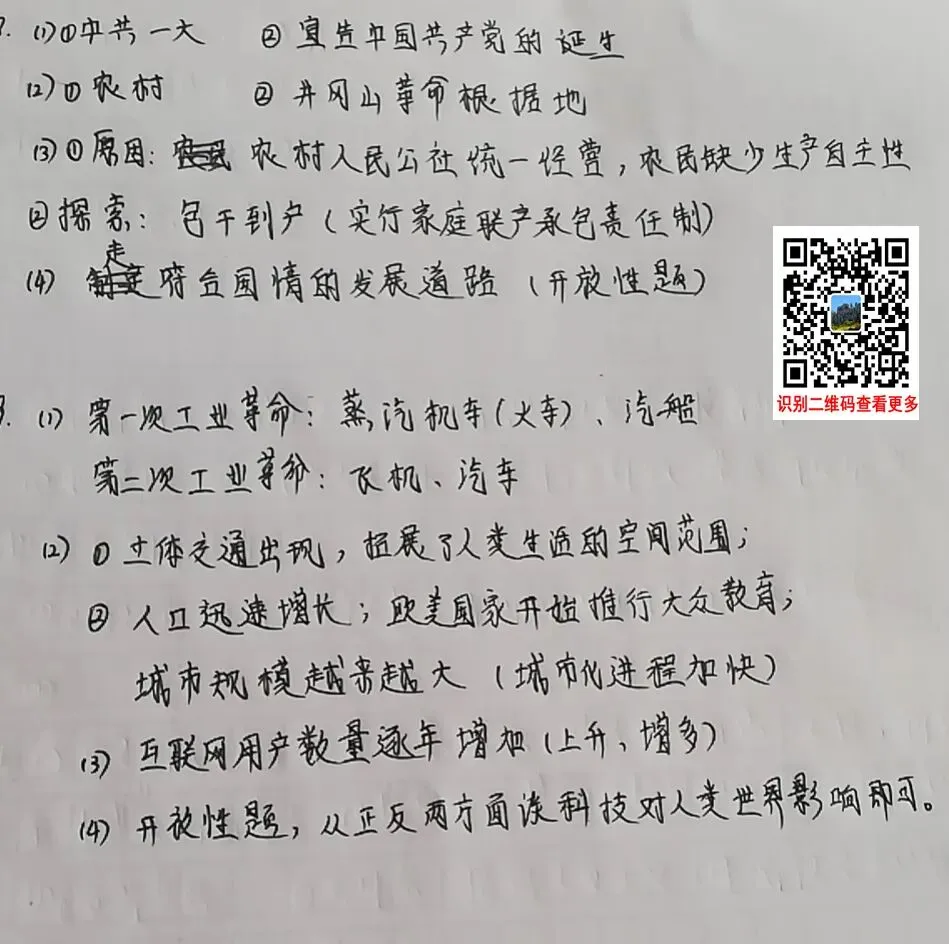 (1)①中共一大 ②宣告中国共产党的诞生
(2)①农村 ②井冈山革命根据地
(3)①原因:农村人民公社统一经营,农民缺少生产自主性
②探索:包干到户(实行家庭联产承包责任制)
(4)走符合国情的发展道路(开放性题)
识别二维码查看更多
(1)第一次工业革命:蒸汽机车(火车)、汽船
第二次工业革命:飞机、汽车
(2)①立体交通出现,拓展了人类生活的空间范围;
②人口迅速增长;欧美国家开始推行大众教育;
城市规模越来越大(城市化进程加快)
(3)互联网用户数量逐年增加(上升、增多)
(4)开放性题,从正反两方面谈科技对人类世界影响即可。